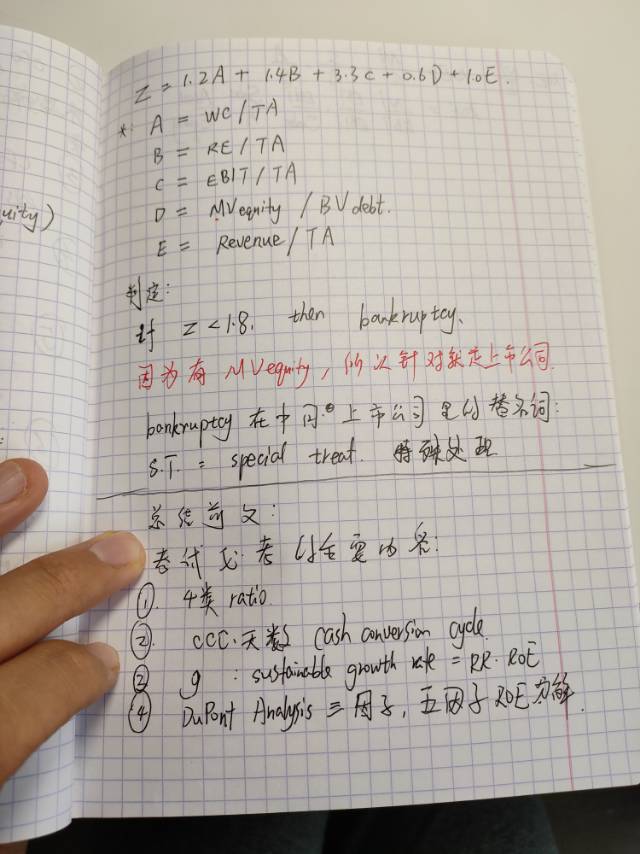 uity)
Z = 1.2A + 1.4B + 3.3C + 0.6D + 1.0E.
*: A = WC/TA
B = RE/TA
C = EBIT/TA
D = MVequity / BVdebt.
E = Revenue/TA
判定:
if Z < 1.8, then bankruptcy.
因为有 MVequity, 所以针对就是上市公司.
bankruptcy 在中国上市公司里的替名词:
S.T. = special treat. 特殊处理
总结前文:
考试必考的主要内容:
① 4类 ratio.
② CCC.天数 cash conversion cycle.
③ g : sustainable growth rate = RR·ROE
④ DuPont Analysis 三因子, 五因子 ROE分解.